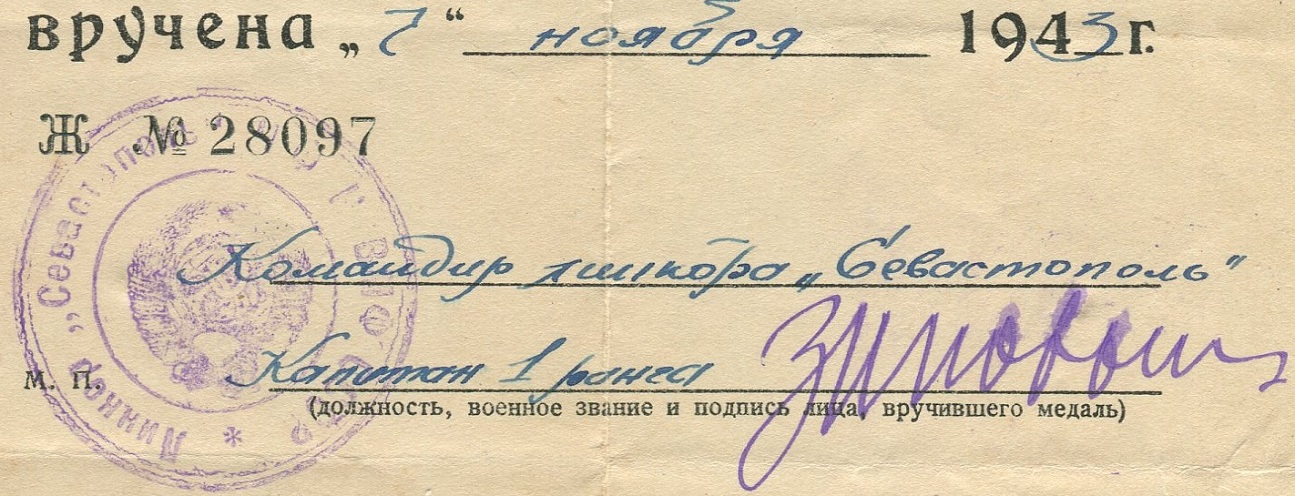 вручена „7“ ноября 1943 г.
Ж № 28097
Командир линкора „Севастополь“
Капитан 1 ранга
м. п.
(должность, военное звание и подпись лица, вручившего медаль)
Линкор „Севастополь“